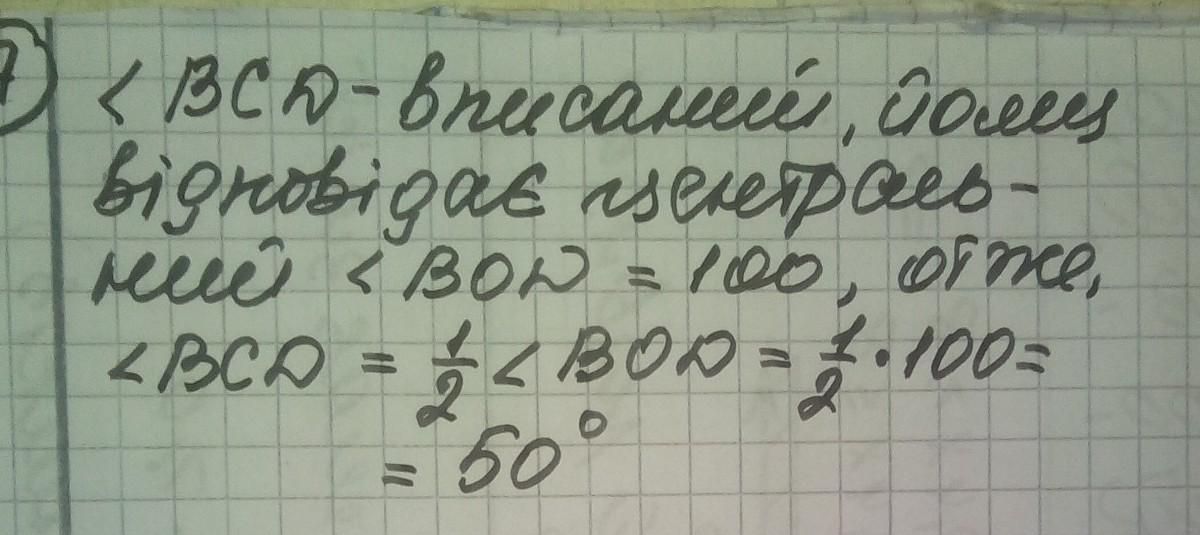 7
< BCD - вписаний, йому
відповідає централь-
ний < BOD = 100, отже,
< BCD = 1/2 < BOD = 1/2 · 100 =
= 50°